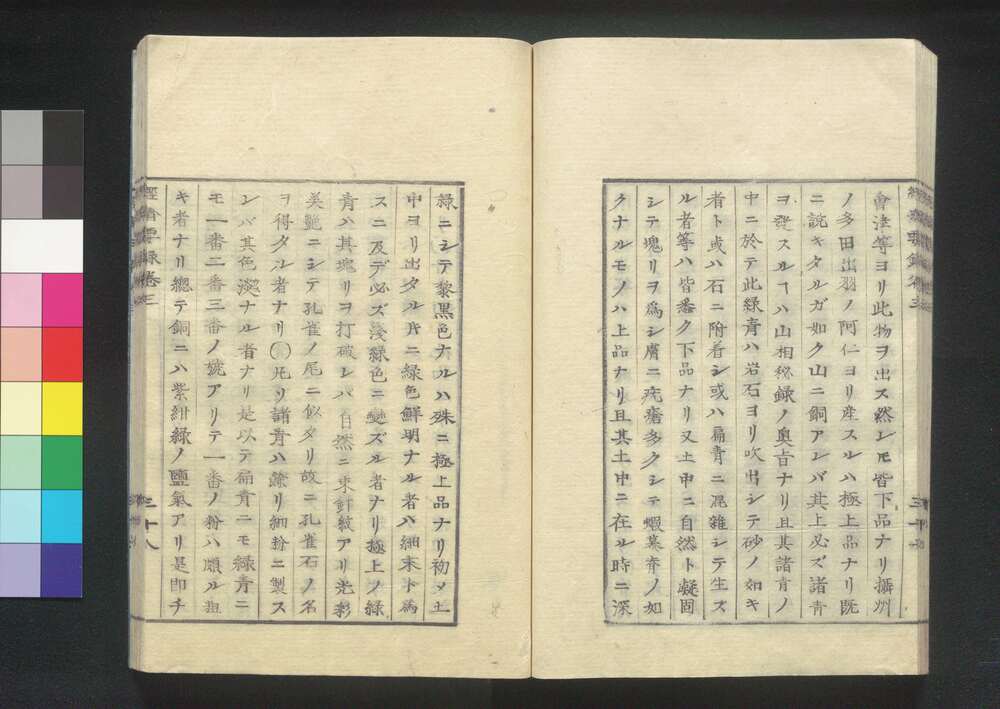 會津等ヨリ此物ヲ出ス然レ𪜈皆下品ナリ攝州
ノ多田出羽ノ阿仁ヨリ産スルハ極上品ナリ既
ニ説キタルガ如ク山ニ銅アレバ其上必ズ諸青
ヲ發スルヿハ山相秘録ノ奥旨ナリ且其諸青ノ
中ニ於テ此緑青ハ岩石ヨリ吹出シテ砂ノ如キ
者ト或ハ石ニ附着シ或ハ扁青ニ混雑シテ生ズ
ル者等ハ皆悉ク下品ナリ又土中ニ自然ト凝固
シテ塊リヲ爲シ膚ニ疣瘡多クシテ蝦蟇脊ノ如
クナルモノハ上品ナリ且其土中ニ在ル時ニ深
緑ニシテ黎黒色ナルハ殊ニ極上品ナリ初メ土
中ヨリ出タル片ニ緑色鮮明ナル者ハ細末ト爲
スニ及デ必ズ淺緑色ニ變ズル者ナリ極上ノ緑
青ハ其塊リヲ打破レバ自然ニ束針紋アリ光彩
美艶ニシテ孔雀ノ尾ニ似タリ故ニ孔雀石ノ名
ヲ得タル者ナリ◯凡ソ諸青ハ練リ細粉ニ製ス
レバ其色淡ナル者ナリ是以テ扁青ニモ緑青ニ
モ一番二番三番ノ號アリテ一番ノ粉ハ頗ル粗
キ者ナリ總テ銅ニハ紫紺緑ノ鹽氣アリ是即チ
經濟要録卷三
三十八